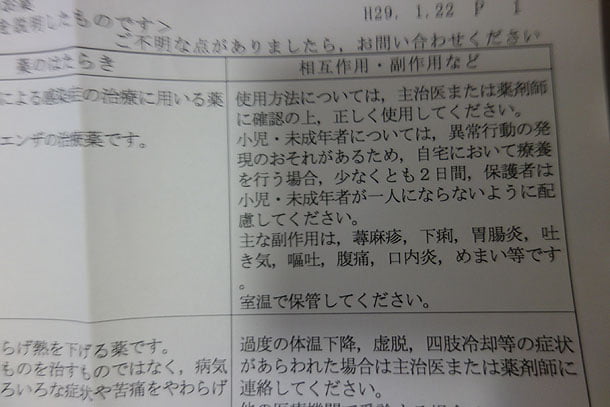 を説明したものです>
H29. 1.22 P 1
ご不明な点がありましたら，お問い合わせください
薬のはたらき
相互作用・副作用など
による感染症の治療に用いる薬
エンザの治療薬です。
使用方法については，主治医または薬剤師
に確認の上，正しく使用してください。
小児・未成年者については，異常行動の発
現のおそれがあるため，自宅において療養
を行う場合，少なくとも２日間，保護者は
小児・未成年者が一人にならないように配
慮してください。
主な副作用は，蕁麻疹，下痢，胃腸炎，吐
き気，嘔吐，腹痛，口内炎，めまい等です
。
室温で保管してください。
らげ熱を下げる薬です。
ものを治すものではなく，病気
ろいろな症状や苦痛をやわらげ
過度の体温下降，虚脱，四肢冷却等の症状
があらわれた場合は主治医または薬剤師に
連絡してください。